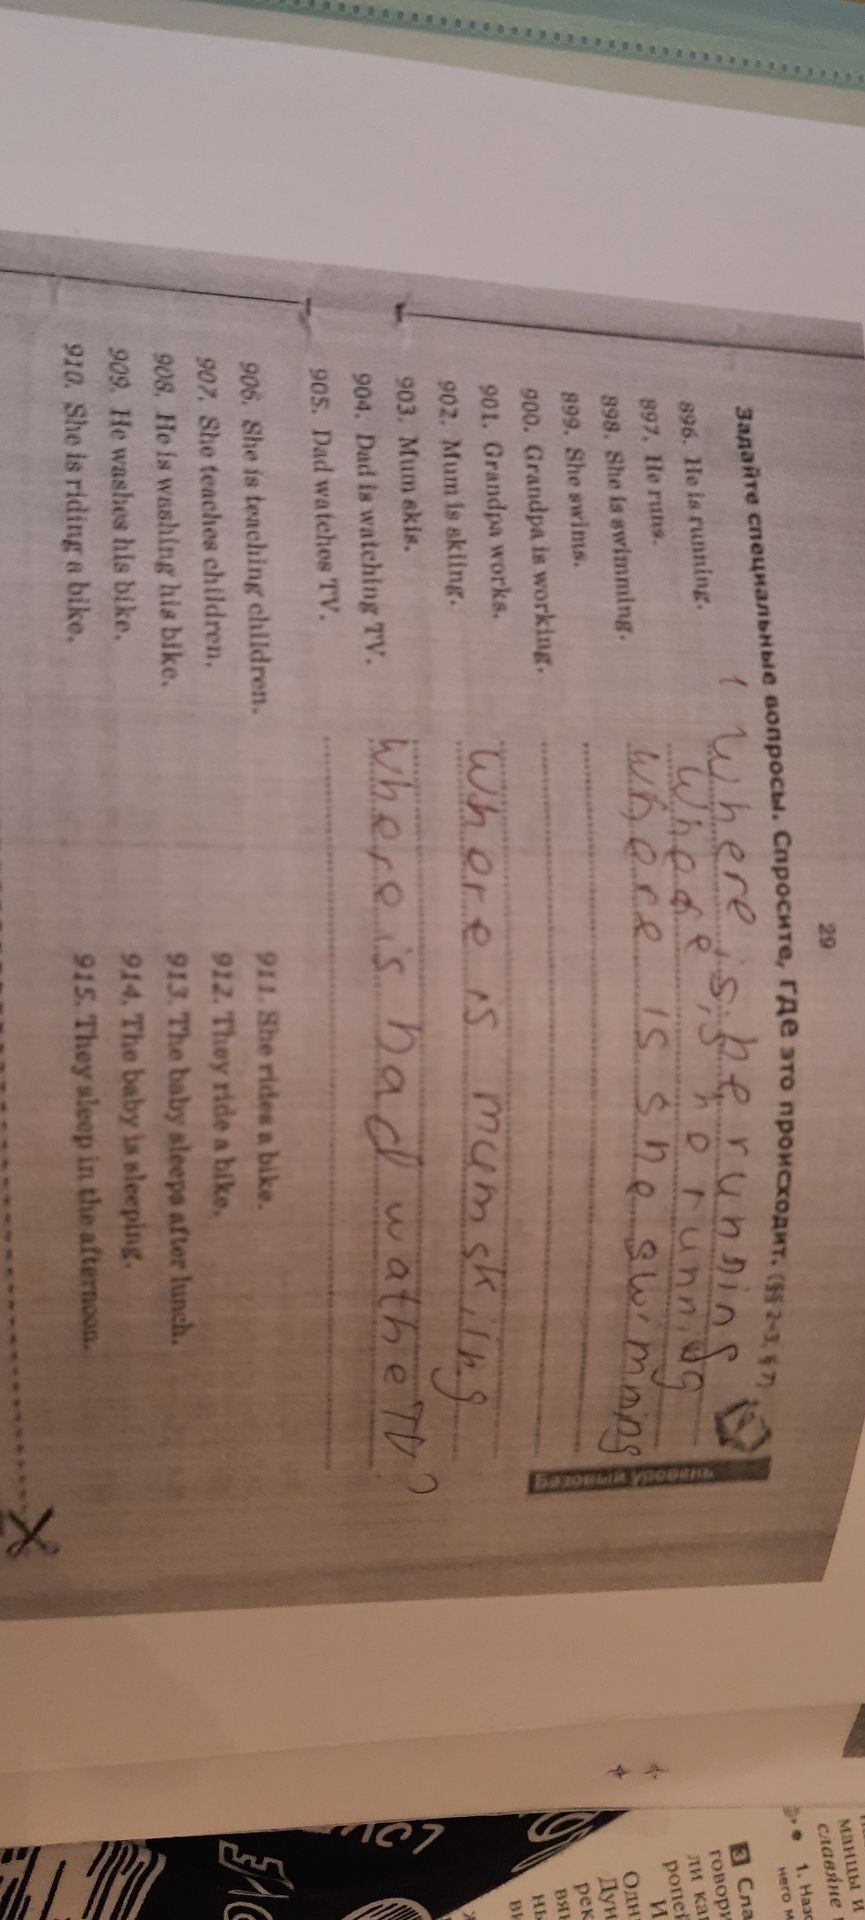 29
Задайте специальные вопросы. Спросите, где это происходит. (§§ 2-3, § 7)
Базовый уровень
896. He is running. 1 Where is he running
897. He runs. Where is ho running
898. She is swimming. Where is she swimming
899. She swims.
900. Grandpa is working.
901. Grandpa works.
902. Mum is skiing. Where is mum skiing
903. Mum skis.
904. Dad is watching TV. Where is had wathe TV?
905. Dad watches TV.
906. She is teaching children.
907. She teaches children.
908. He is washing his bike.
909. He washes his bike.
910. She is riding a bike.
911. She rides a bike.
912. They ride a bike.
913. The baby sleeps after lunch.
914. The baby is sleeping.
915. They sleep in the afternoon.
манцы и
славяне
1. Назо
него м
3 Сла
говори
ли ка
ропе
И
Одн
Дун
рек
вян